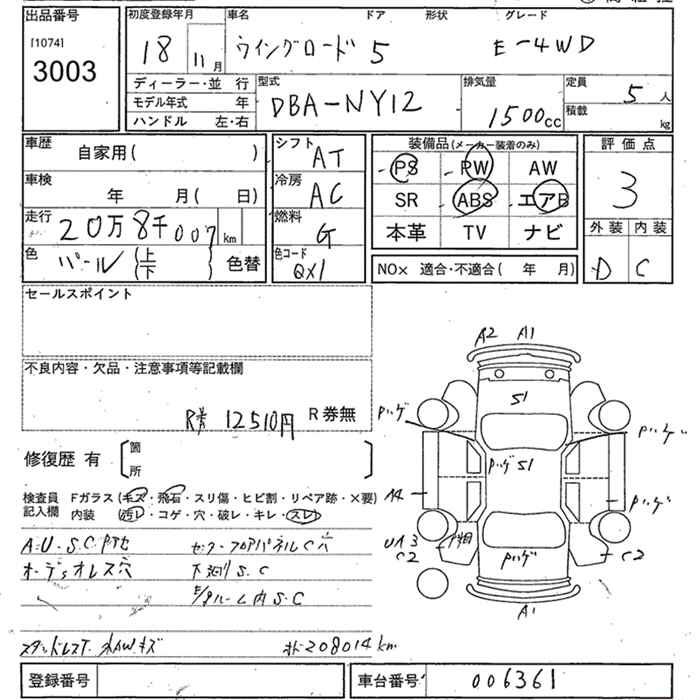 出品番号 初度登録年月 車名 ドア 形状 グレード
[1074]
3003
18 11月 ウイングロード 5 E-4WD
ディーラー・並 行
モデル年式 年
ハンドル 左・右
型式 DBA-NY12
排気量 1500cc
定員 5人
積載 kg
車歴 自家用( )
車検 年 月( 日)
走行 20万8千007km
色 パール (上 下) 色替
シフト AT
冷房 AC
燃料 G
色コード QX1
装備品(メーカー装着のみ)
PS PW AW
SR ABS エアB
本革 TV ナビ
NOx 適合・不適合( 年 月)
評価点
3
外装 内装
D C
セールスポイント
不良内容・欠品・注意事項等記載欄
R券 12510円 R券無
修復歴 有 箇所
検査員記入欄
Fガラス(キズ・飛石・スリ傷・ヒビ割・リペア跡・×要)
内装 (汚レ・コゲ・穴・破レ・キレ・スレ)
A2 A1
S1
Pハゲ
Pハゲ
Pハゲ S1
A4
Pハゲ
UA3
C2
Pハゲ
C2
A1
オーディオレス穴
下廻りS.C
ルーム内S.C
スタッドレスT. 外AWキズ
208014km
登録番号
車台番号 006361